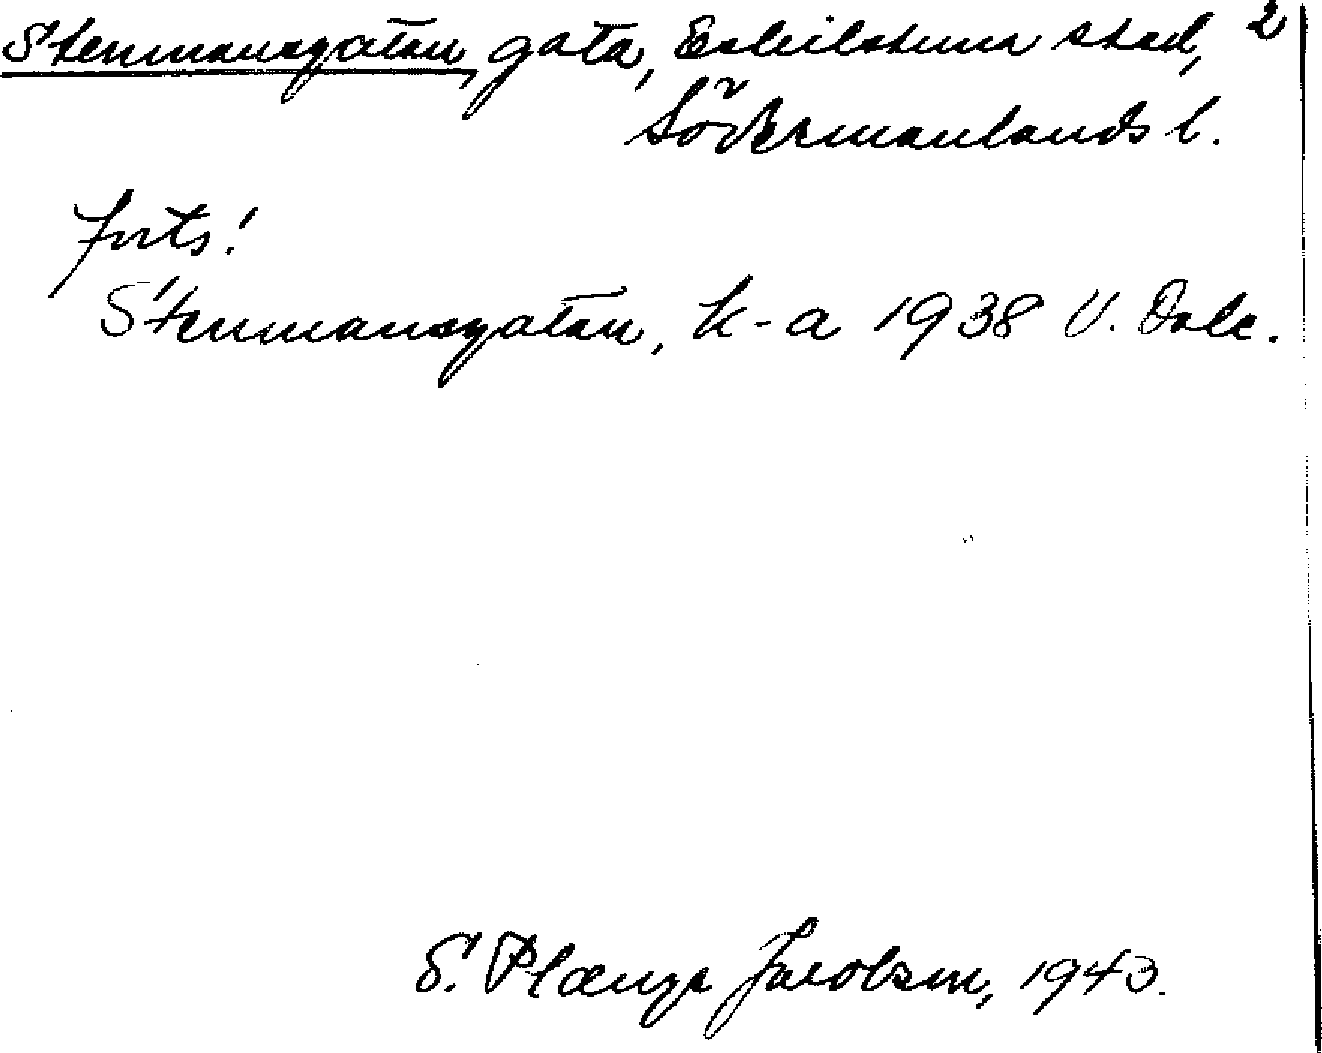 Stenmansgatan, gata, Eskilstuna stad, 2
Södermanlands l.
forts!
Stenmansgatan, k-a 1938 V. Dale.
S. Plænge Jacobson, 1943.